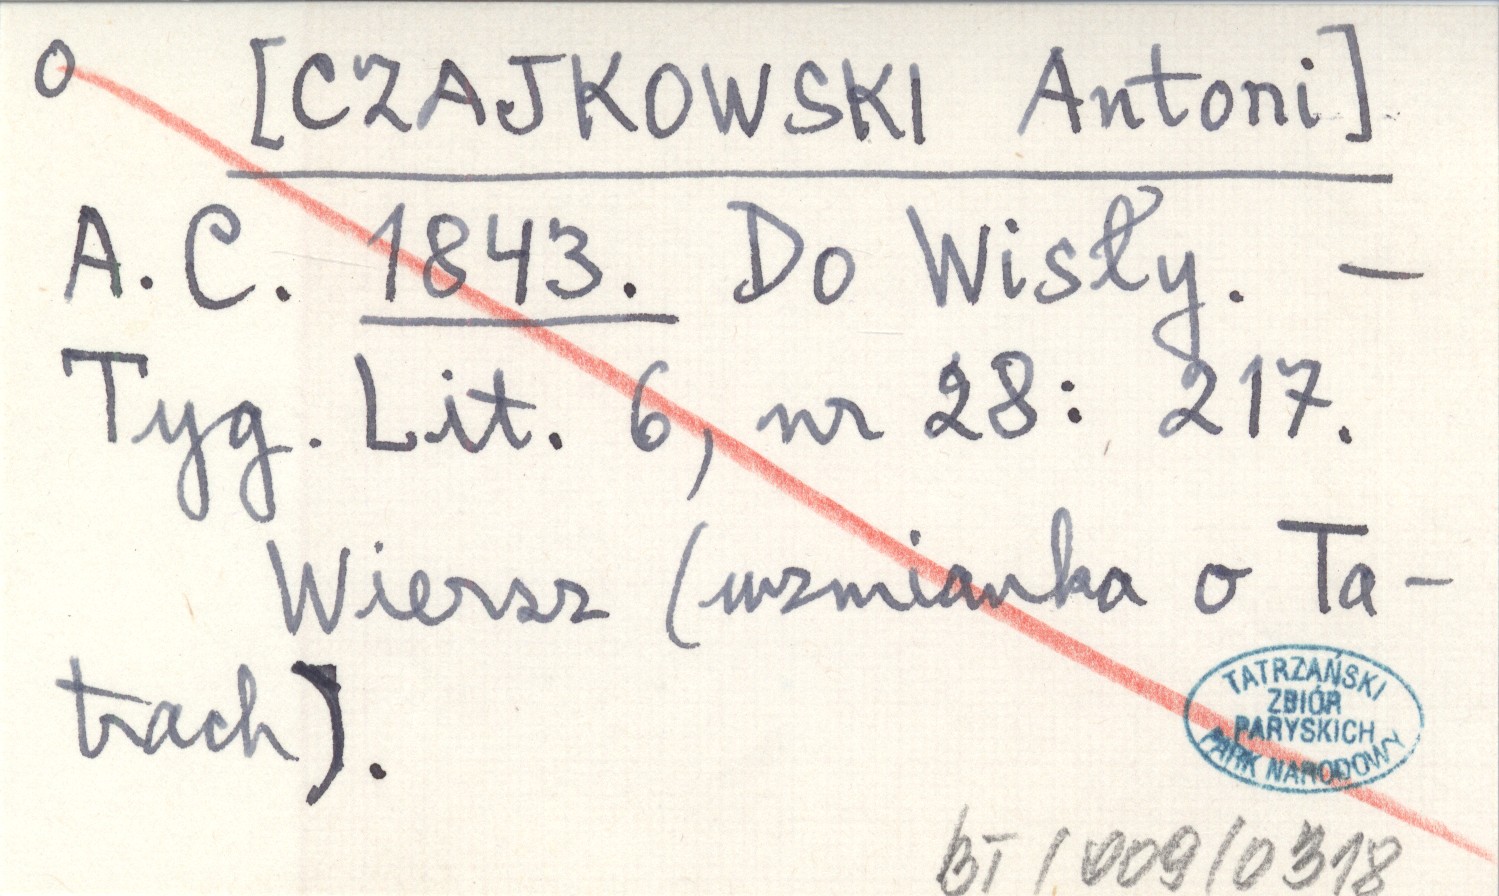 o [CZAJKOWSKI Antoni]
A. C. 1843. Do Wisły. —
Tyg. Lit. 6, nr 28: 217.
Wiersz (wzmianka o Ta-
trach).
TATRZAŃSKI
ZBIÓR
PARYSKICH
PARK NARODOWY
BT / 009 / 0318